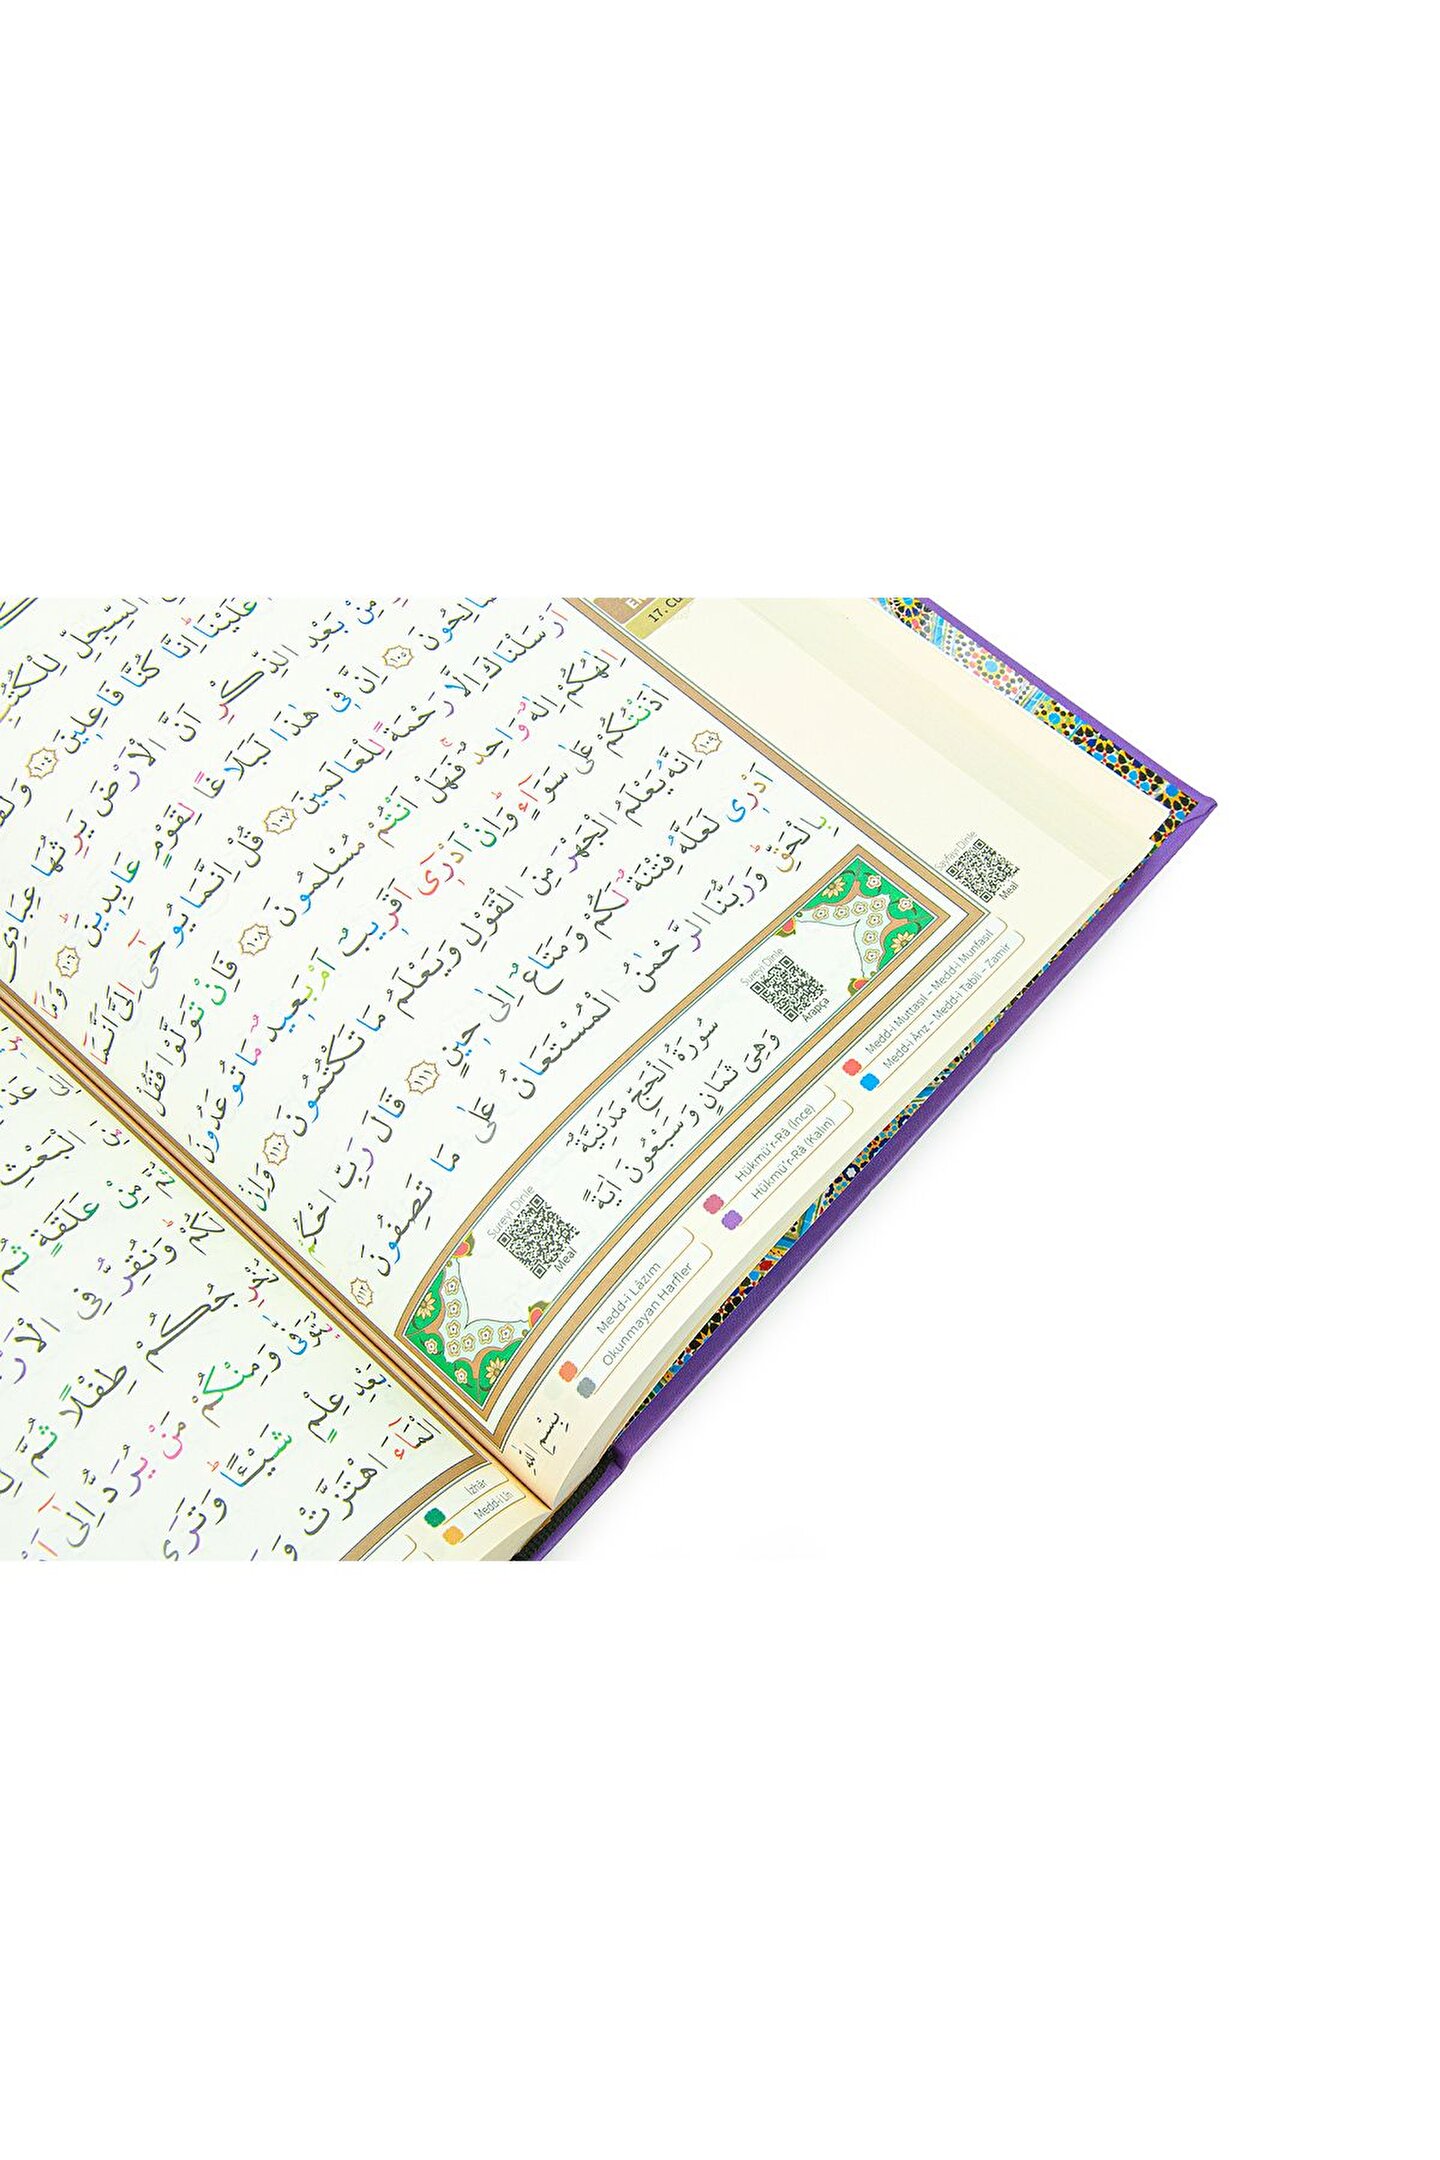 السِّجِلِّ لِلْكُتُبِ
عَلَيْنَا اِنَّا كُنَّا فَاعِلِينَ ﴿١٠٤﴾
مِنْ بَعْدِ الذِّكْرِ اَنَّ الْاَرْضَ يَرِثُهَا عِبَادِىَ
اِنَّ فِى هٰذَا لَبَلَاغًا لِقَوْمٍ عَابِدِينَ ﴿١٠٦﴾ وَمَٓا
اَرْسَلْنَاكَ اِلَّا رَحْمَةً لِلْعَالَمِينَ ﴿١٠٧﴾ قُلْ اِنَّمَا يُوحٰٓى اِلَىَّ اَنَّمَٓا
اِلٰهُكُمْ اِلٰهٌ وَاحِدٌۚ فَهَلْ اَنْتُمْ مُسْلِمُونَ ﴿١٠٨﴾ فَاِنْ تَوَلَّوْا فَقُلْ
اٰذَنْتُكُمْ عَلٰى سَوَٓاءٍۜ وَاِنْ اَدْرِٓى اَقَرِيبٌ اَمْ بَعِيدٌ مَا تُوعَدُونَ
﴿١٠٩﴾ اِنَّهُ يَعْلَمُ الْجَهْرَ مِنَ الْقَوْلِ وَيَعْلَمُ مَا تَكْتُمُونَ ﴿١١٠﴾ وَاِنْ
اَدْرِى لَعَلَّهُ فِتْنَةٌ لَكُمْ وَمَتَاعٌ اِلٰى حِينٍ ﴿١١١﴾ قَالَ رَبِّ احْكُمْ
بِالْحَقِّۜ وَرَبُّنَا الرَّحْمٰنُ الْمُسْتَعَانُ عَلٰى مَا تَصِفُونَ ﴿١١٢﴾
سُورَةُ الْحَجِّ مَدَنِيَّةٌ
وَهِىَ ثَمَانٍ وَسَبْعُونَ اٰيَةً
Sureyi Dinle
Arapça
Sureyi Dinle
Meal
Sayfayı Dinle
Meal
17. Cü
Medd-i Muttasıl - Medd-i Munfasıl
Medd-i Ârız - Medd-i Tabîi - Zamir
Hükmü'r-Râ (İnce)
Hükmü'r-Râ (Kalın)
Medd-i Lâzım
Okunmayan Harfler
بِسْمِ اللّٰهِ
الْبَعْثِ
مِنْ عَلَقَةٍ ثُمَّ
لَكُمْۜ وَنُقِرُّ فِى الْاَرْ
طِفْلًا ثُمَّ
يُتَوَفّٰى وَمِنْكُمْ مَنْ يُرَدُّ اِلٰٓى
بَعْدِ عِلْمٍ شَيْـًٔاۜ وَتَرَى
الْمَٓاءَ اهْتَزَّتْ وَ
Izhâr
Medd-i Lîn